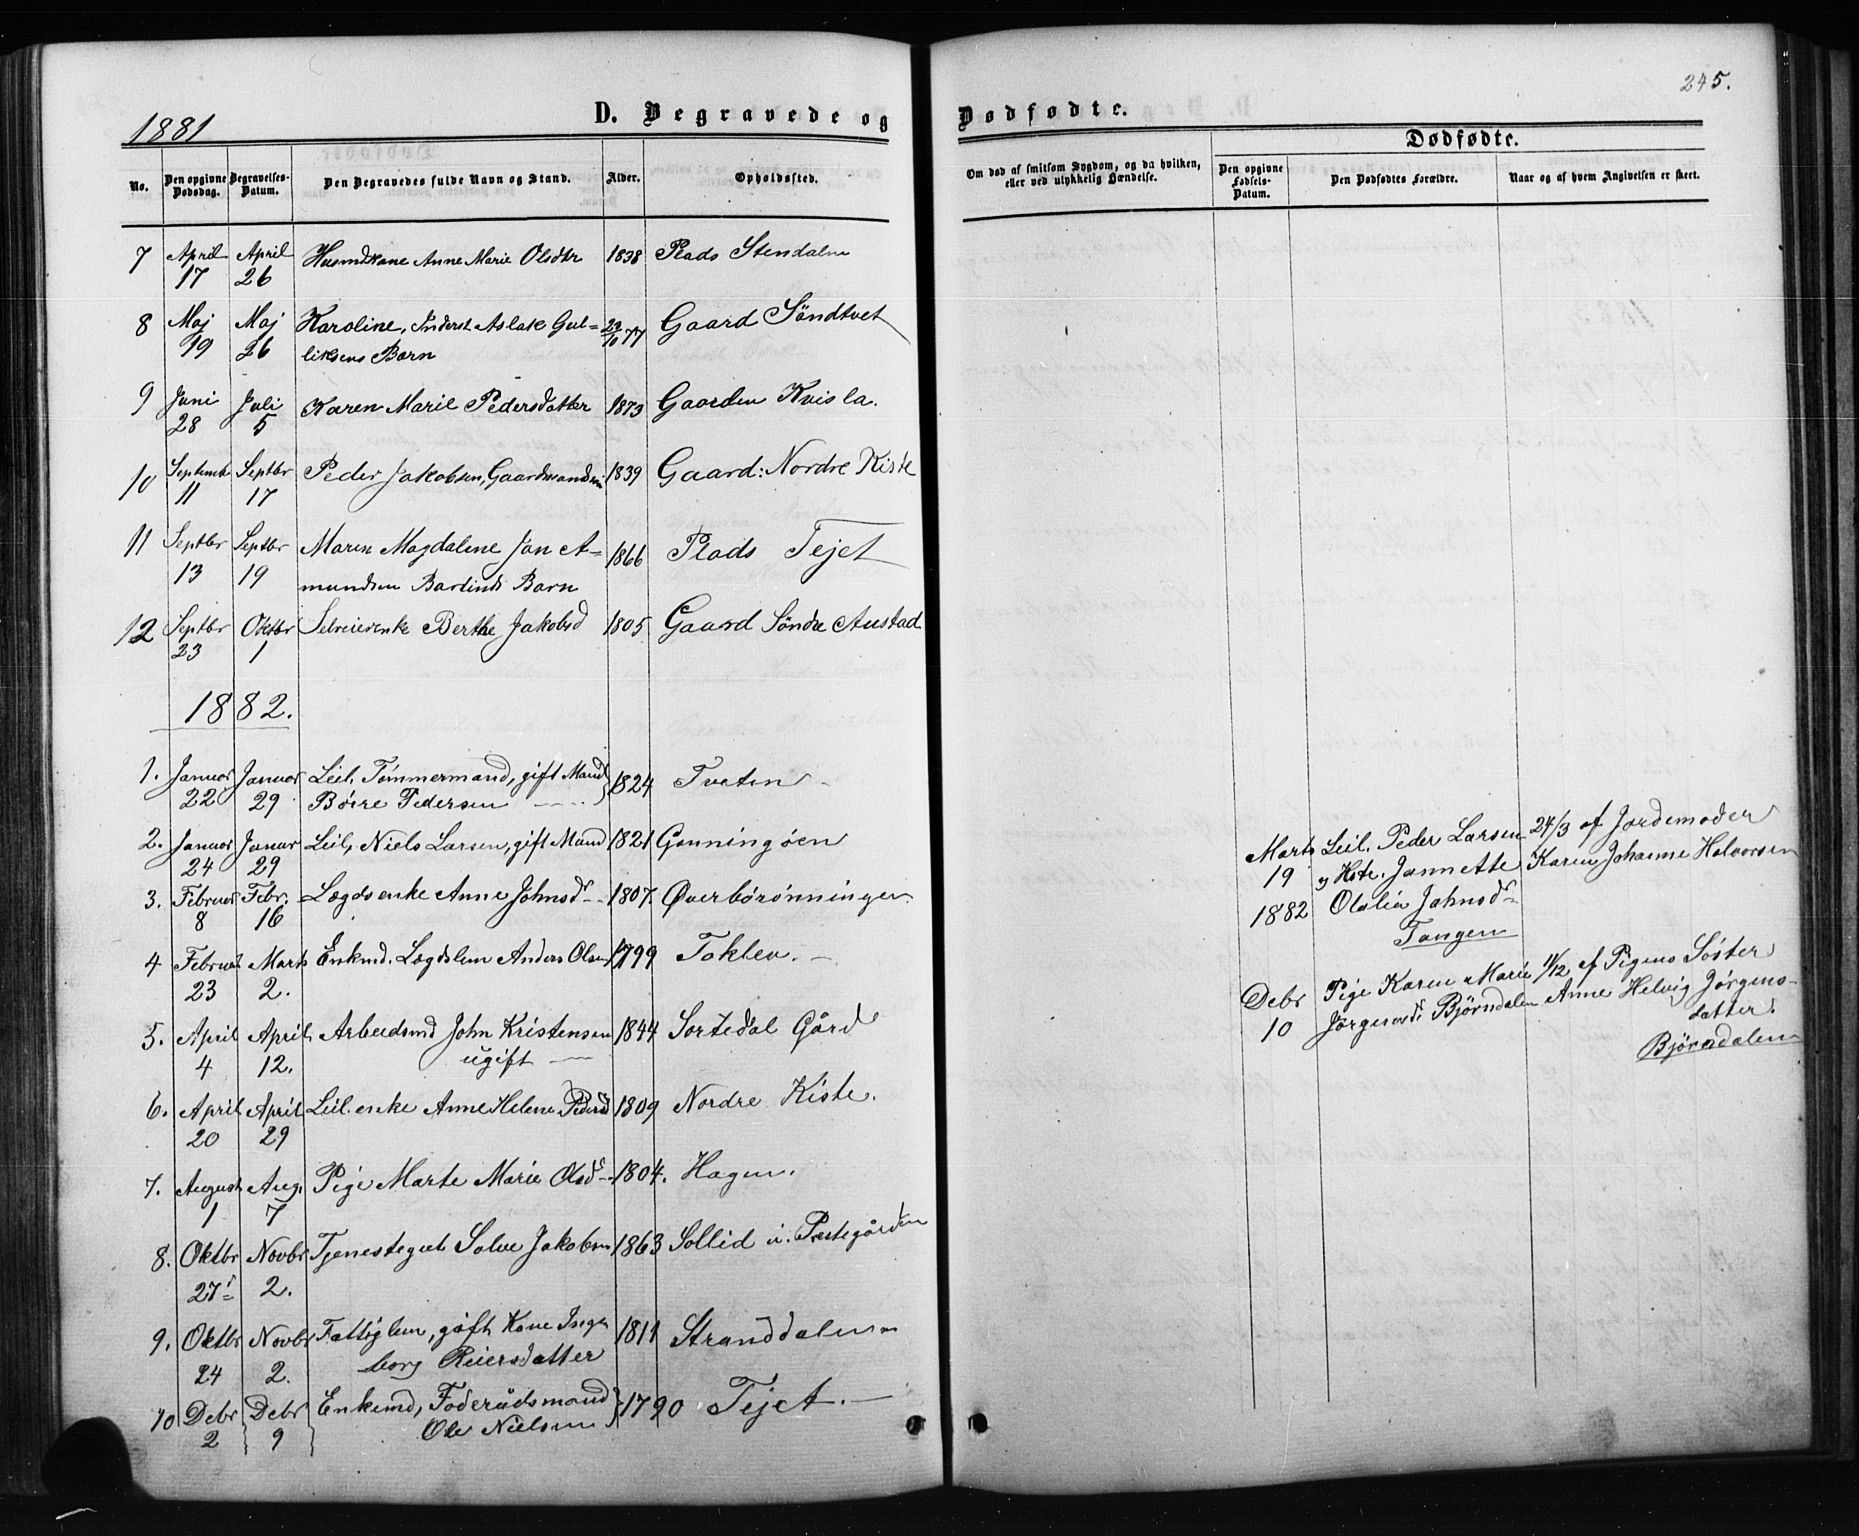 245.
1881
D. Begravede og Dødfødte.
Dødfødte.
No.
Den opgivne Dødsdag.
Begravelses-Datum.
Den Begravedes fulde Navn og Stand.
Alder.
Opholdssted.
Om død af smitsom Sygdom, og da hvilken, eller ved ulykkelig Hændelse.
Den opgivne Fødsels-Datum.
Den Dødfødtes Forældre.
Naar og af hvem Angivelsen er skeet.
7 April April Husmdkone Anne Marie Olsdtr 1838 Plads Stendalen
17 26
8 Maj Maj Karoline, Inderst Aslak Gul= 22/10 77 Gaard Söndtvet
19 26 liksens Barn
9 Juni Juli Karen Marie Pedersdatter 1873 Gaarden Kvisla.
28 5
10 Septembr Septbr Peder Jakobsen, Gaardmand 1839 Gaard: Nordre Kiste
11 17
11 Septbr Septbr Maren Magdalene Jan A= 1866 Plads Tejet
13 19 mundsen Barlinds Barn
12 Septbr Oktbr Selveierenke Berthe Jakobsd 1805 Gaard Söndre Austad
23 1
1882.
1. Januar Januar Leil. Tömmermand, gift Mand 1824 Tveten
22 29 Börre Pedersen
2. Januar Januar Leil. Niels Larsen, gift Mand 1821 Gonningöen
24 29
3. Februar Febr. Lægdsenke Anne Johnsdr 1807. Øverbörönningen
8 16
4 Februar Marts Enkmd. Lægdslem Anders Olsen 1799 Toklev.
23 2.
5. April April Arbeidsmd John Kristensen 1844 Sortedal Gård
4 12. ugift
6. April April Leil. enke Anne Helene Pedersd 1809 Nordre Kiste.
20 29
7. August Aug. Pige Marte Marie Olsdr 1804. Hagen.
1 7
8. Oktbr Novbr Tjenestegut Solve Jakobsen 1863 Sollid u. Prestegården
27 2.
9. Oktbr Novbr Fattiglem, gift Kone Inge 1811 Stranddalen
24 2. borg Reiersdatter
10 Debr Debr Enkemd, Föderådsmand 1790 Tejet.
2 9 Ole Nielsen
Marts Leil. Peder Larsen 24/3 af Jordemoder
19 og Hste. Jannette Karen Johanne Halvorsen
1882 Olalia Jahnsdr
Tangen
Debr Pige Karen Marie 11/12 af Pigens Söster
10 Jörgensd. Björndalen Anne Helvig Jörgens-
datter.
Björndalen